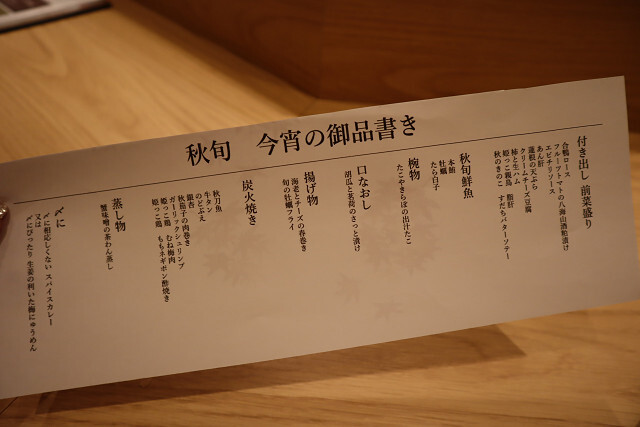 秋旬　今宵の御品書き
付き出し 前菜盛り
合鴨ロース
フルーツトマトの八海山酒粕漬け
エビチリソース
あん肝
蓮根の天ぷら
クリームチーズ豆腐
柿と生ハム
姫っこ親鳥 脂肝
秋のきのこ すだちバターソテー
秋旬鮮魚
本鮪
牡蠣
たら白子
椀物
たこやきらぼの出汁たこ
口なおし
胡瓜と茗荷のさっと漬け
揚げ物
海老とチーズの春巻き
旬の牡蠣フライ
炭火焼き
秋刀魚
牛タン
のどぶえ
銀杏
秋茄子の肉巻き
ガーリックシュリンプ
姫っこ鶏 むね梅肉
姫っこ鶏 ももネギポン酢焼き
蒸し物
蟹味噌の茶わん蒸し
〆に
〆に相応しくない スパイスカレー
又は
〆にぴったり 生姜の利いた梅にゅうめん